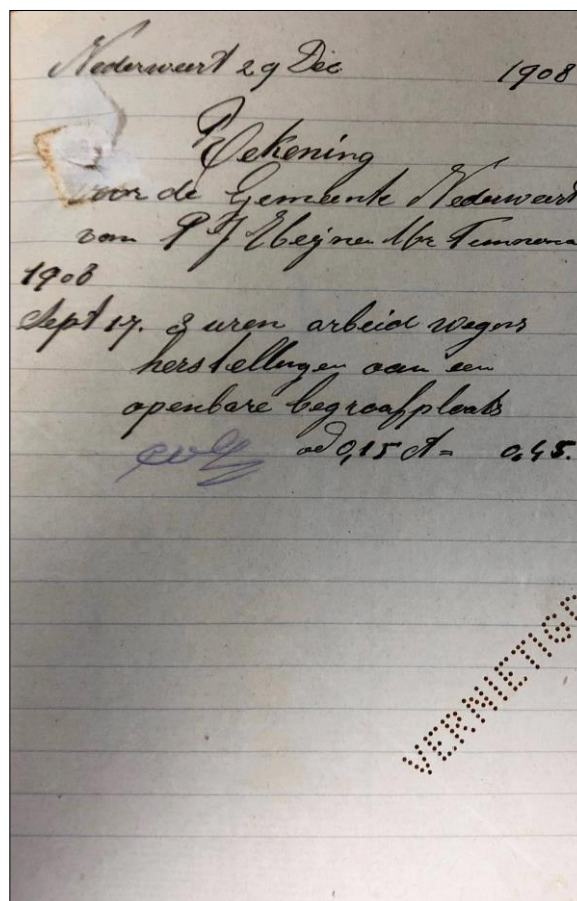 Nederweert 29 Dec 1908
Rekening
voor de Gemeente Nederweert
van P J
1908
Sept 17. 3 uren arbeid wegens
herstellingen aan een
openbare begraafplaats
ad 0,15 ct = 0,45.
VERNIETIGD